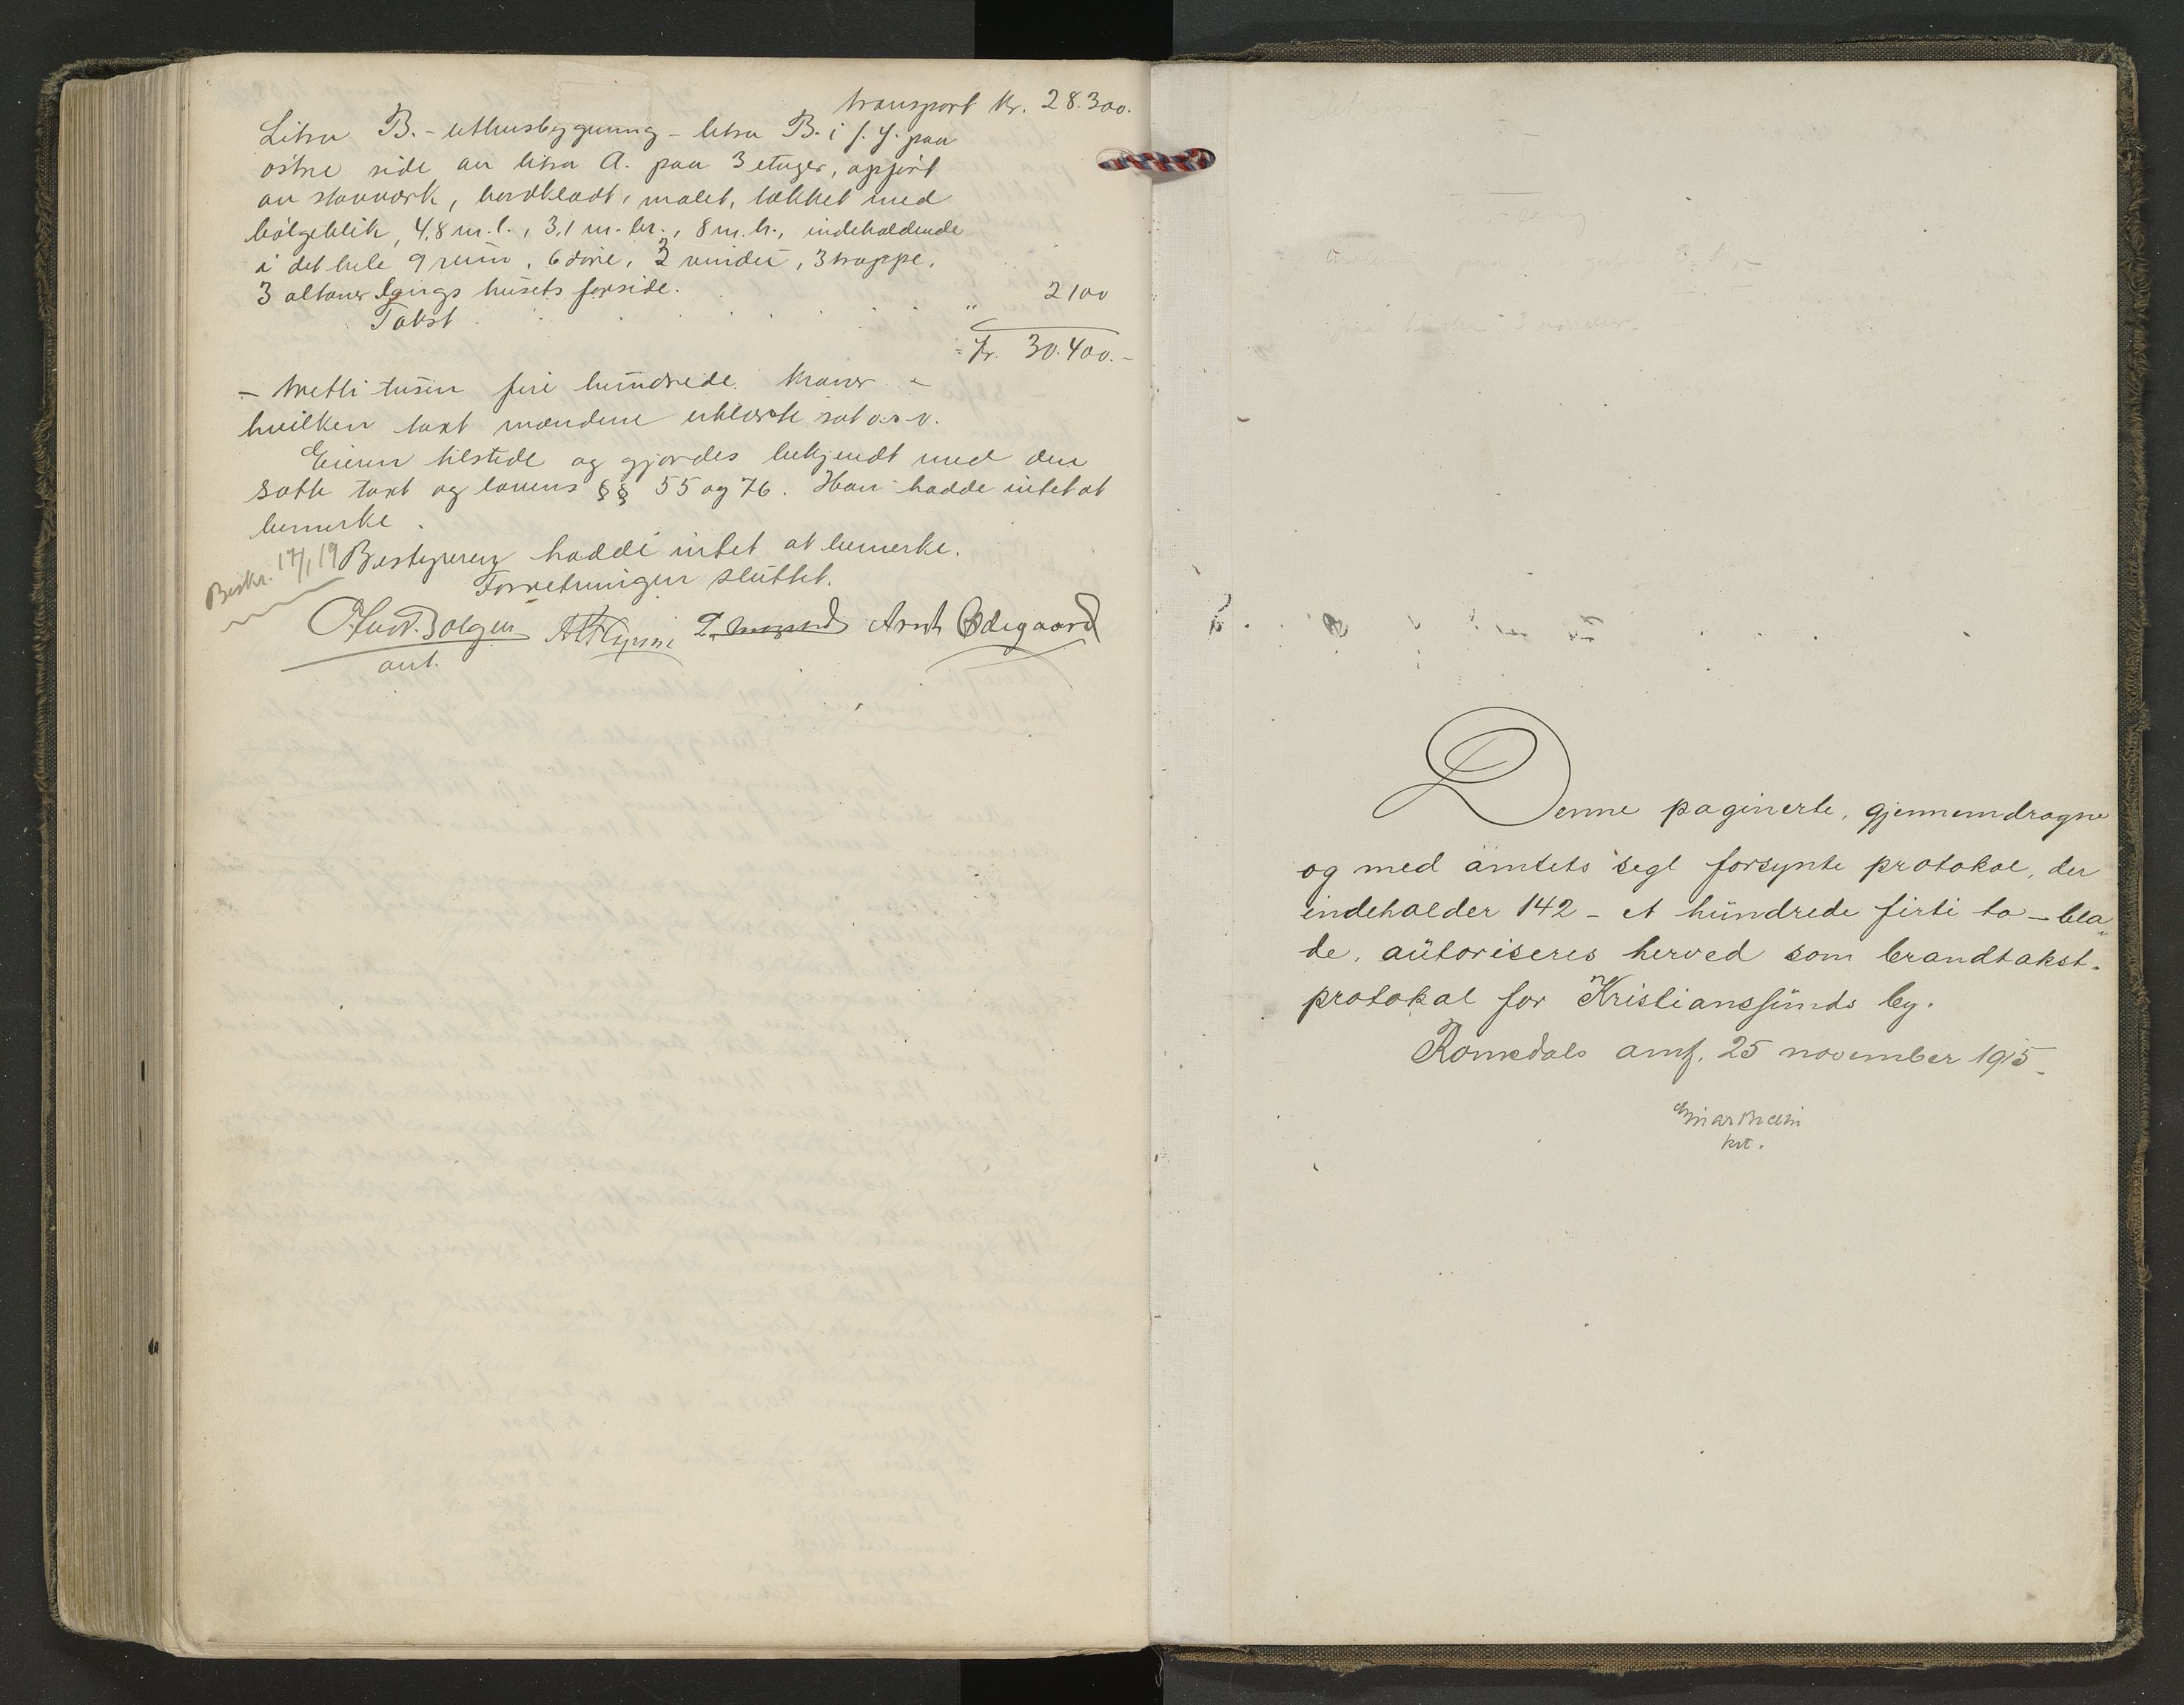 transport Kr. 28.300.
Litra B. - uthusbygning - litra B. i f. f. paa
östre side av litra A. paa 3 etager, opfört
av stavverk, bordklædt, malet, tækket med
bölgeblik, 4,8 m. l., 3,1 m. br., 8 m. h., indeholdende
i det hele 9 rum, 6 döre, 3 vindu, 3 trappe,
3 altaner langs husets forside.
Takst . . . . . . . " 2100
= Kr. 30.400.-
- tretti tusen fire hundrede kroner -
hvilken taxt mændene erklærte sat o.s.v.
Eieren tilstede og gjordes bekjendt med den
satte taxt og lovens §§ 55 og 76. Han hadde intet at
bemerke.
Beskr. 17/1 19 Bestyreren hadde intet at bemerke.
Forretningen sluttet.
Arnt Ödegaard
Denne paginerte, gjennemdragne
og med amtets segl forsynte protokol, der
indeholder 142 - et hundrede firti to - bla-
de, autoriseres herved som brandtakst-
protokol for Kristianssunds by.
Romsdals amt, 25 november 1915.
kst.